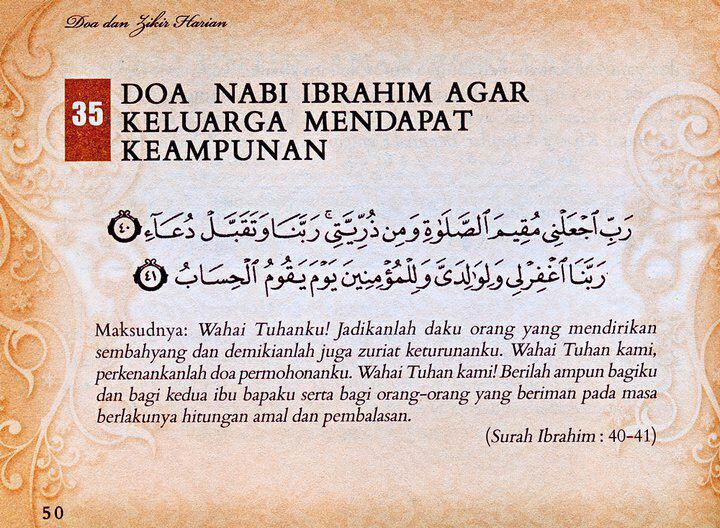 Doa dan Zikir Harian
35
DOA NABI IBRAHIM AGAR
KELUARGA MENDAPAT
KEAMPUNAN
رَبِّ ٱجْعَلْنِى مُقِيمَ ٱلصَّلَوٰةِ وَمِن ذُرِّيَّتِى ۚ رَبَّنَا وَتَقَبَّلْ دُعَآءِ ٤٠
رَبَّنَا ٱغْفِرْ لِى وَلِوَٰلِدَىَّ وَلِلْمُؤْمِنِينَ يَوْمَ يَقُومُ ٱلْحِسَابُ ٤١
Maksudnya: Wahai Tuhanku! Jadikanlah daku orang yang mendirikan
sembahyang dan demikianlah juga zuriat keturunanku. Wahai Tuhan kami,
perkenankanlah doa permohonanku. Wahai Tuhan kami! Berilah ampun bagiku
dan bagi kedua ibu bapaku serta bagi orang-orang yang beriman pada masa
berlakunya hitungan amal dan pembalasan.
(Surah Ibrahim : 40-41)
50